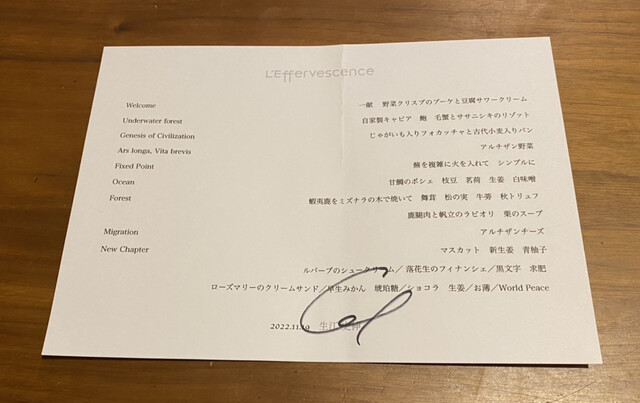 L'Effervescence
Welcome 一献 野菜クリスプのブーケと豆腐サワークリーム
Underwater forest 自家製キャビア 鮑 毛蟹とササニシキのリゾット
Genesis of Civilization じゃがいも入りフォカッチャと古代小麦入りパン
Ars longa, Vita brevis アルチザン野菜
Fixed Point 蕪を複雑に火を入れて シンプルに
Ocean 甘鯛のポシェ 枝豆 茗荷 生姜 白味噌
Forest 蝦夷鹿をミズナラの木で焼いて 舞茸 松の実 牛蒡 秋トリュフ
鹿腿肉と帆立のラビオリ 栗のスープ
Migration アルチザンチーズ
New Chapter マスカット 新生姜 青柚子
ルバーブのシュークリーム／ 落花生のフィナンシェ／黒文字 求肥
ローズマリーのクリームサンド／早生みかん 琥珀糖／ショコラ 生姜／お薄／World Peace
2022.11.19 生江